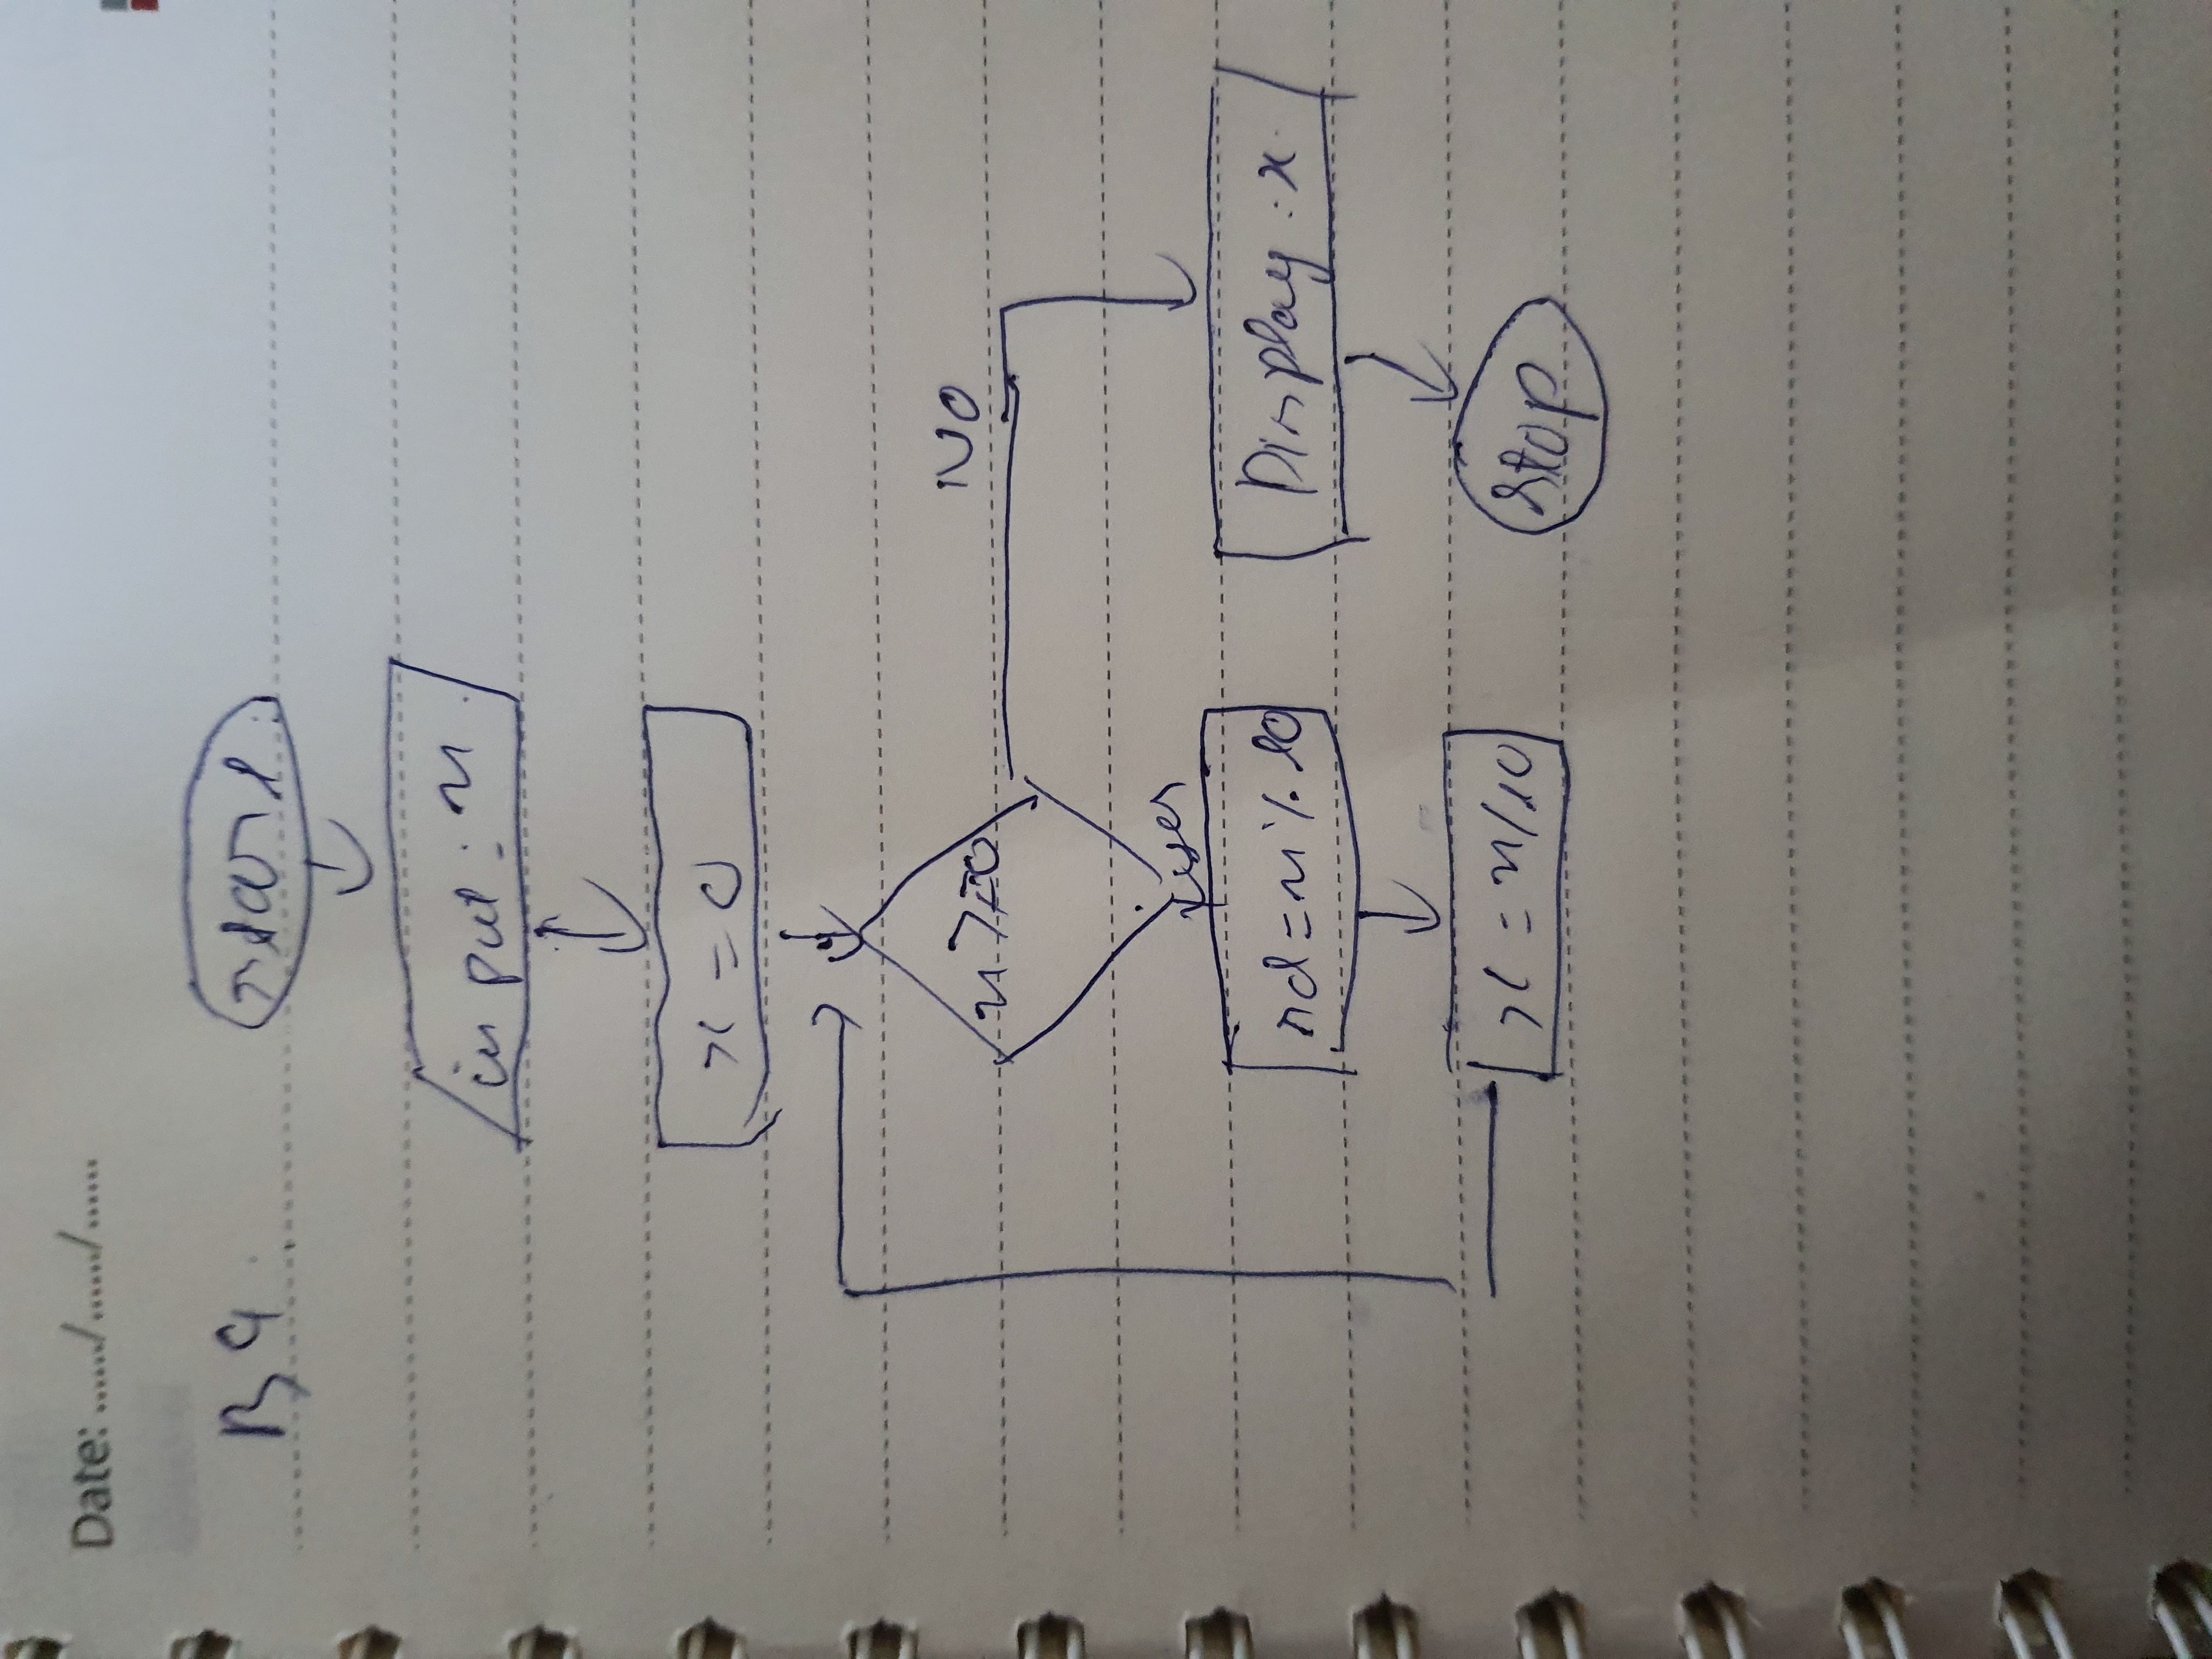 Date: ....../....../......
B4.
start
input: n.
x = 0
n >= 0
NO
yes
sd = n % 10
Display : x.
x = n/10
stop